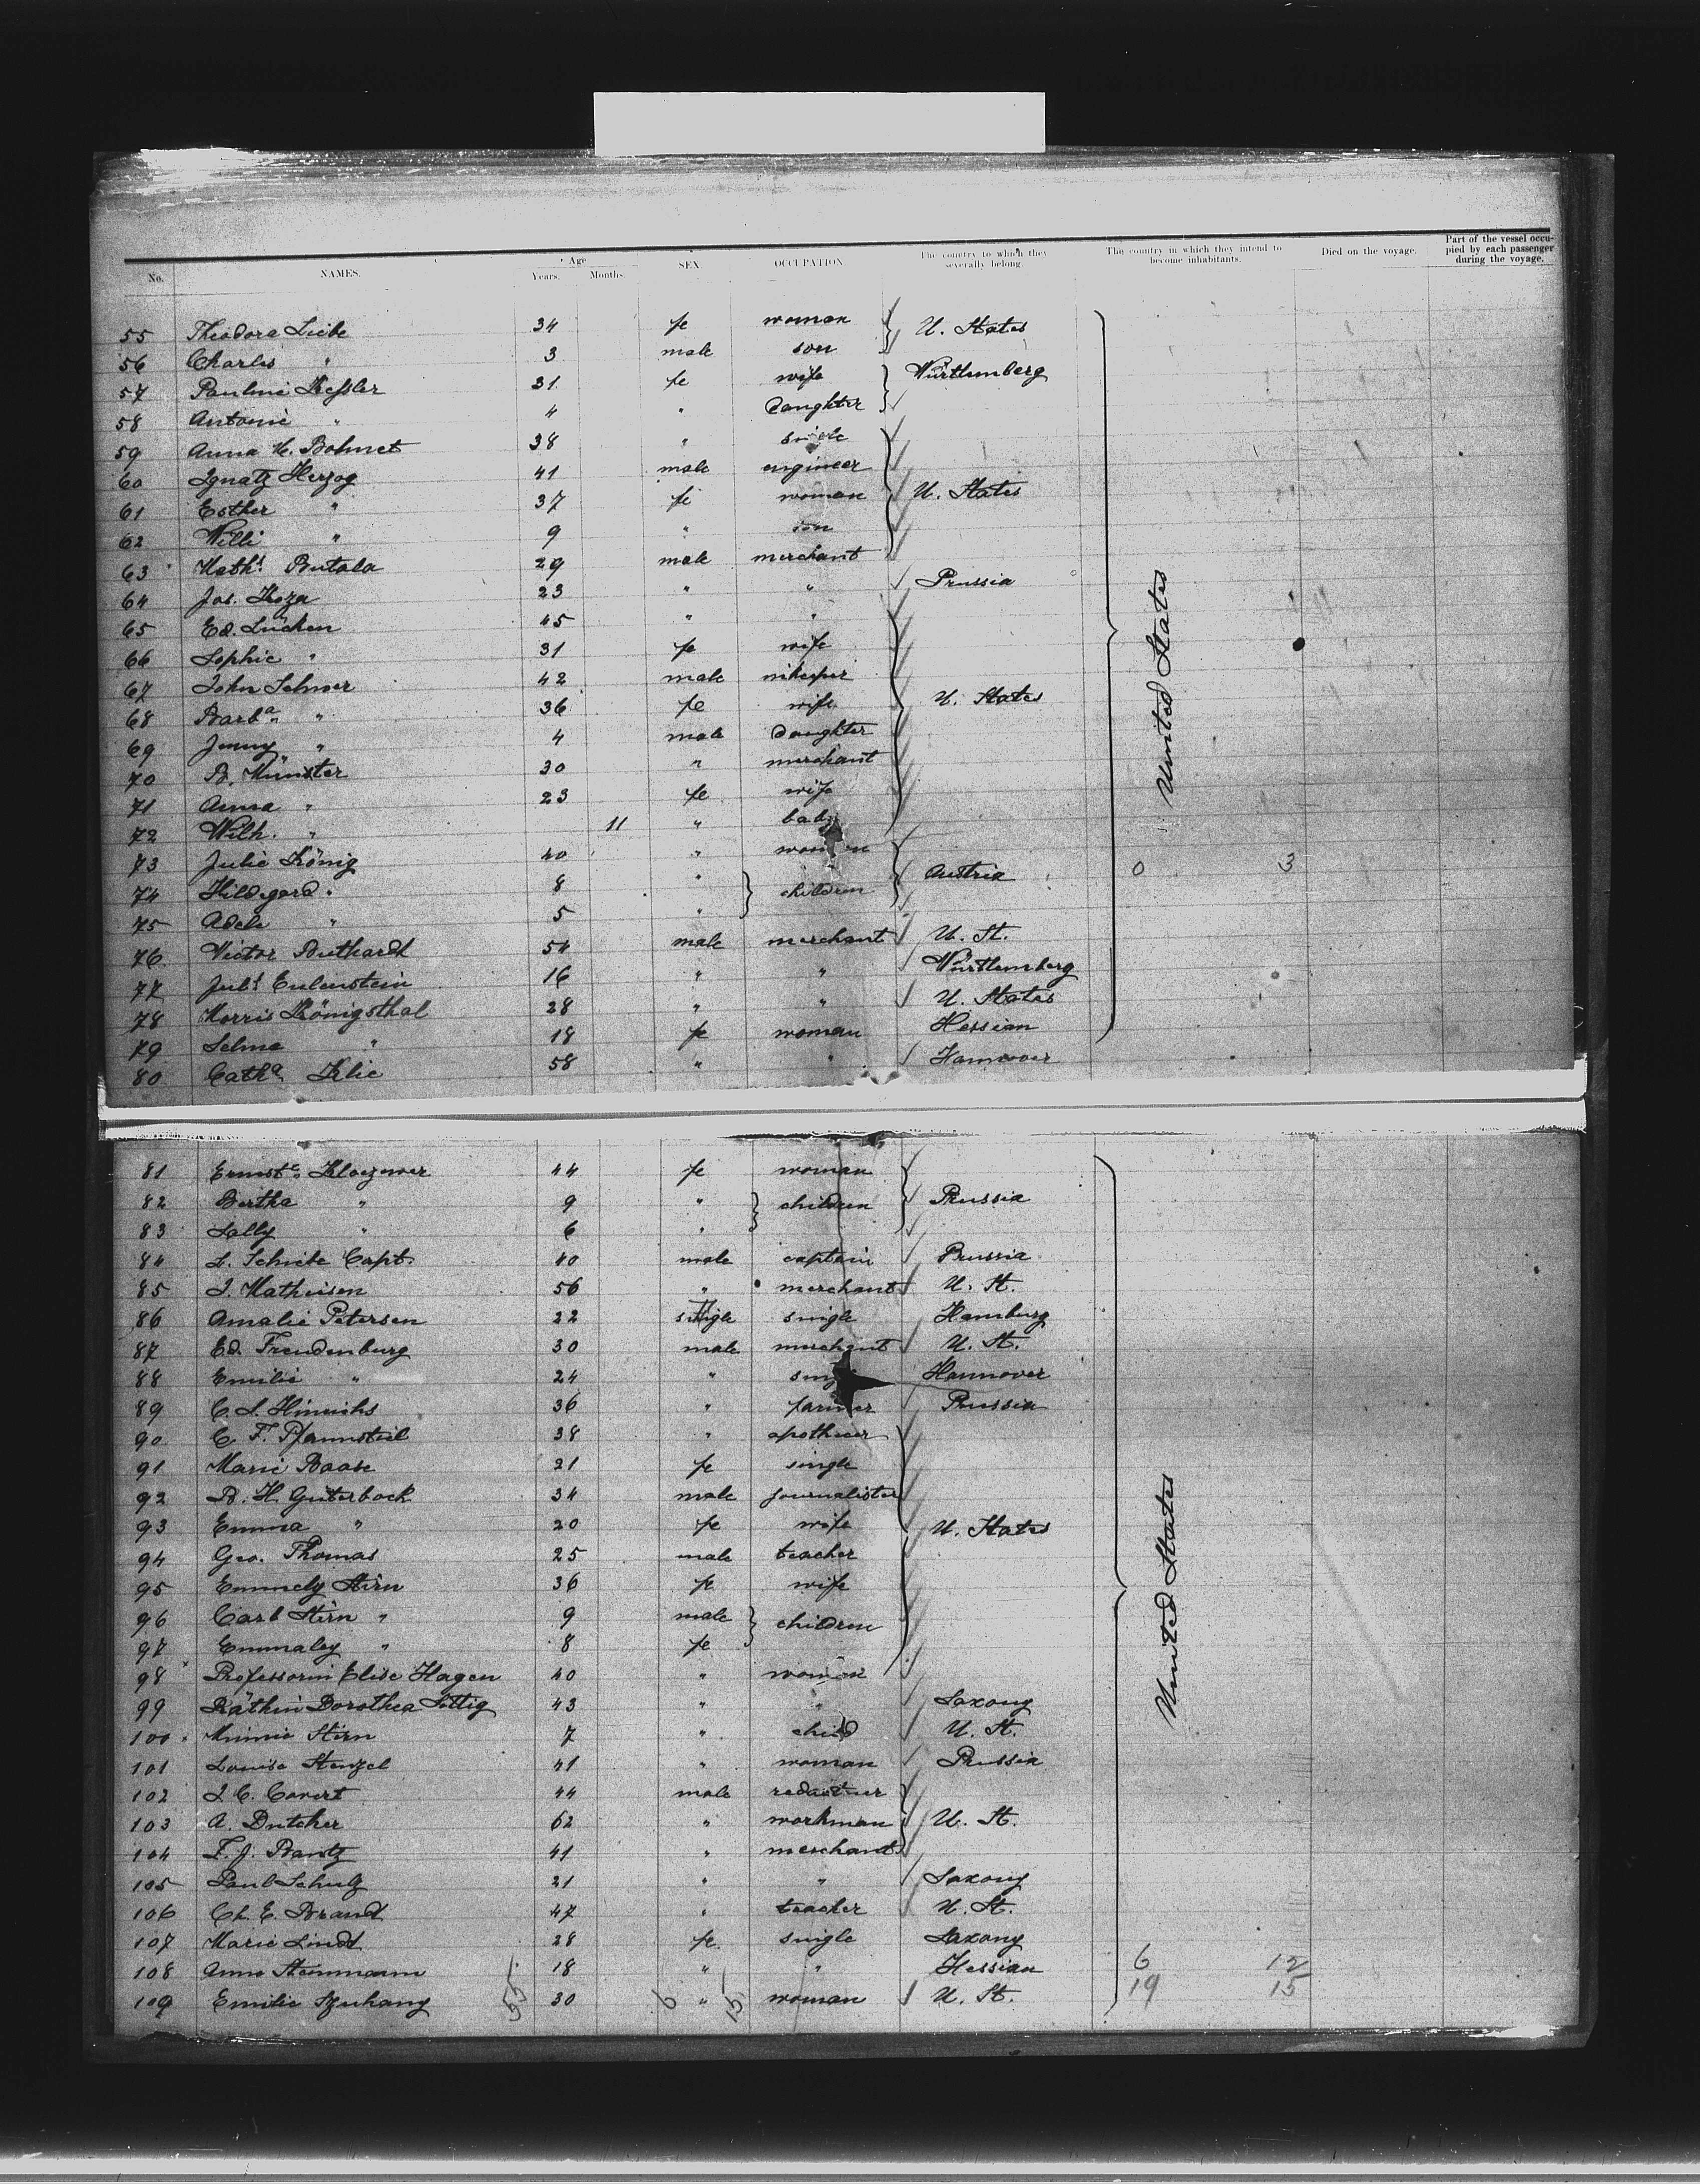 No. NAMES. Age Years. Months. SEX. OCCUPATION. The country to which they severally belong. The country in which they intend to become inhabitants. Died on the voyage. Part of the vessel occupied by each passenger during the voyage.
55 Theodora Liebe 34 fe woman U. States
56 Charles " 3 male son
57 Pauline Kessler 31 fe wife Württemberg
58 Antonie " 4 " Daughter
59 Anna M. Bohnet 38 "
60 Ignatz Herzog 41 male engineer
61 Esther " 37 fe woman U. States
62 Willi " 9 " son
63 Math. Butala 29 male merchant
64 Jos. Koza 23 " " Prussia
65 Ed. Lücken 45 " "
66 Sophie " 31 fe wife
67 John 42 male
68 Barbª " 36 fe wife U. States
69 Jenny " 4 male Daughter
70 B. Münster 30 " merchant
71 Anna " 23 fe wife
72 Wilh. " 11 " baby
73 Julie König 40 " woman
74 Hildegard " 8 " children Austria 0 3
75 Adele " 5 "
76 Victor 54 male merchant U. St.
77 Juls Eulenstein 16 " " Württemberg
78 Morris Königsthal 28 " " U. States
79 Selma " 18 fe woman Hessian
80 Cathª 58 " " Hannover
United States
81 44 fe woman
82 Bertha " 9 " children Prussia
83 Sally " 6 "
84 L. Schiebe Capt. 40 male captain Prussia
85 J. Matheisen 56 " merchant U. St.
86 Amalie Petersen 22 single Hamburg
87 Ed. Freudenburg 30 male merchant U. St.
88 Emilie " 24 " Hannover
89 C. L. Hinrichs 36 " farmer Prussia
90 C. F. Pfannstiel 38 " apothecer
91 Marie Baase 21 fe single
92 B. H. Güterbock 34 male journalister
93 Emma " 20 fe wife U. States
94 Geo. Thomas 25 male teacher
95 Emmely Stirn 36 fe wife
96 Carl Stirn " 9 male children
97 Emmaley " 8 fe
98 Professorin Elise Hagen 40 " woman
99 Räthin Dorothea 43 " " Saxony
100 Minnie Stirn 7 " child U. St.
101 Louise Stenzel 41 " woman Prussia
102 J. C. Covert 44 male
103 A. Dutcher 62 " workman U. St.
104 F. J. Bantz 41 " merchant
105 Paul Schulz 21 " " Saxony
106 Ch. E. Brand 47 " teacher U. St.
107 Marie Lindt 28 fe single Saxony
108 Anna Steinmann 18 " " Hessian 6 12
109 Emilie 55 30 6 " 15 woman U. St. 19 15
United States